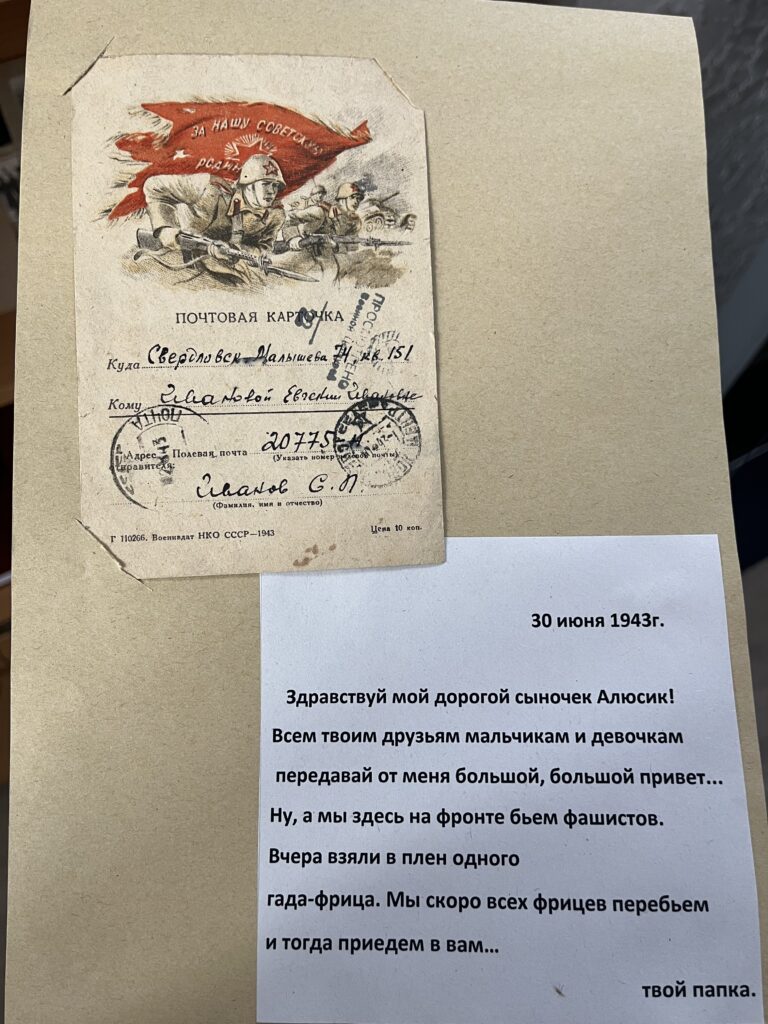 ЗА НАШУ СОВЕТСКУЮ
РОДИНУ
ПОЧТОВАЯ КАРТОЧКА
ПРОСМОТРЕНО
Военной Цензурой
Куда Свердловск-Малышева 74 кв. 151
Кому Ивановой Евгении Ивановне
ПОЧТА
СССР
Адрес отправителя: Полевая почта 20775-
(Указать номер полевой почты)
Иванов С. П.
(Фамилия, имя и отчество)
Г 110266. Воениздат НКО СССР—1943
Цена 10 коп.
30 июня 1943г.
Здравствуй мой дорогой сыночек Алюсик!
Всем твоим друзьям мальчикам и девочкам
передавай от меня большой, большой привет...
Ну, а мы здесь на фронте бьем фашистов.
Вчера взяли в плен одного
гада-фрица. Мы скоро всех фрицев перебьем
и тогда приедем в вам...
твой папка.